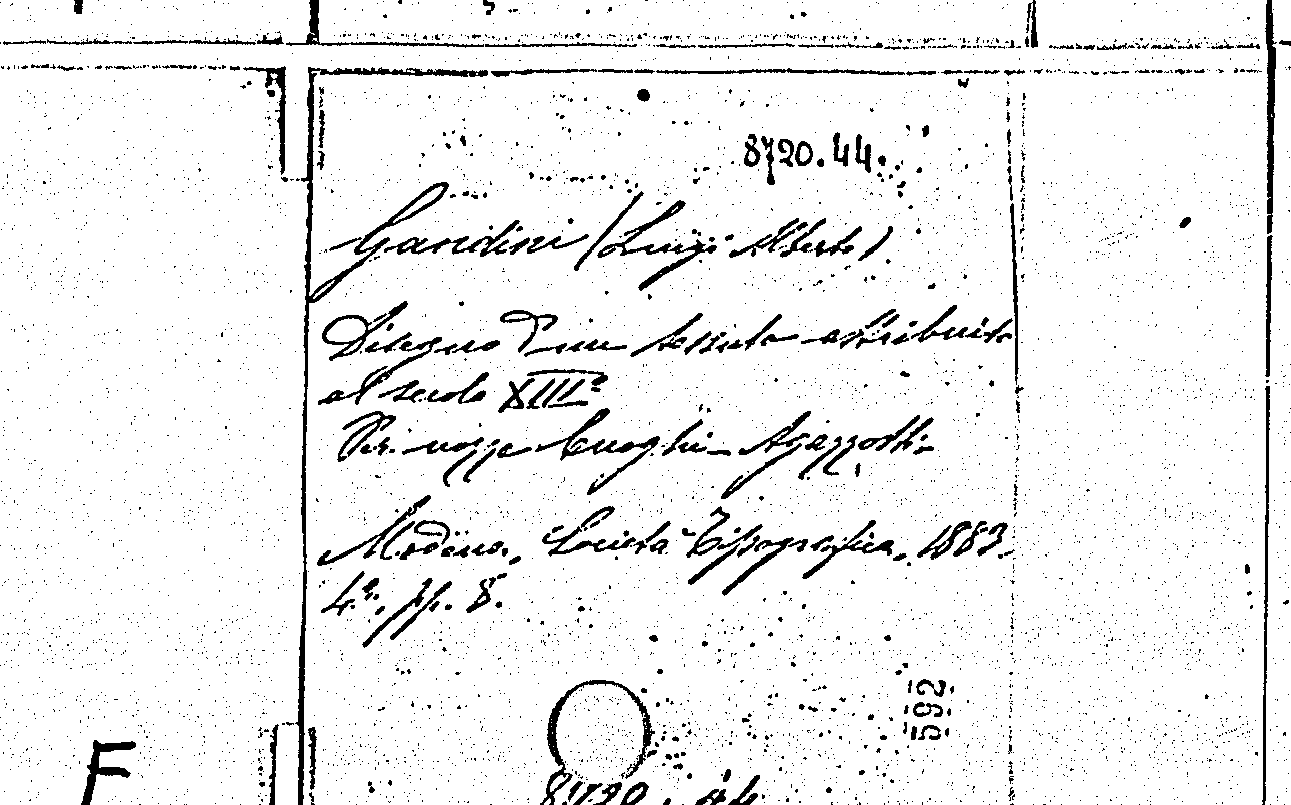 8720.44.
Gandini (Luigi Alberto)
Disegno d'un tessuto attribuito
al secolo XIIIº
Per nozze Cuoghi - Agazzotti.
Modena, Società Tipografica, 1883.
4º. pp. 8.
592
F
8720.44